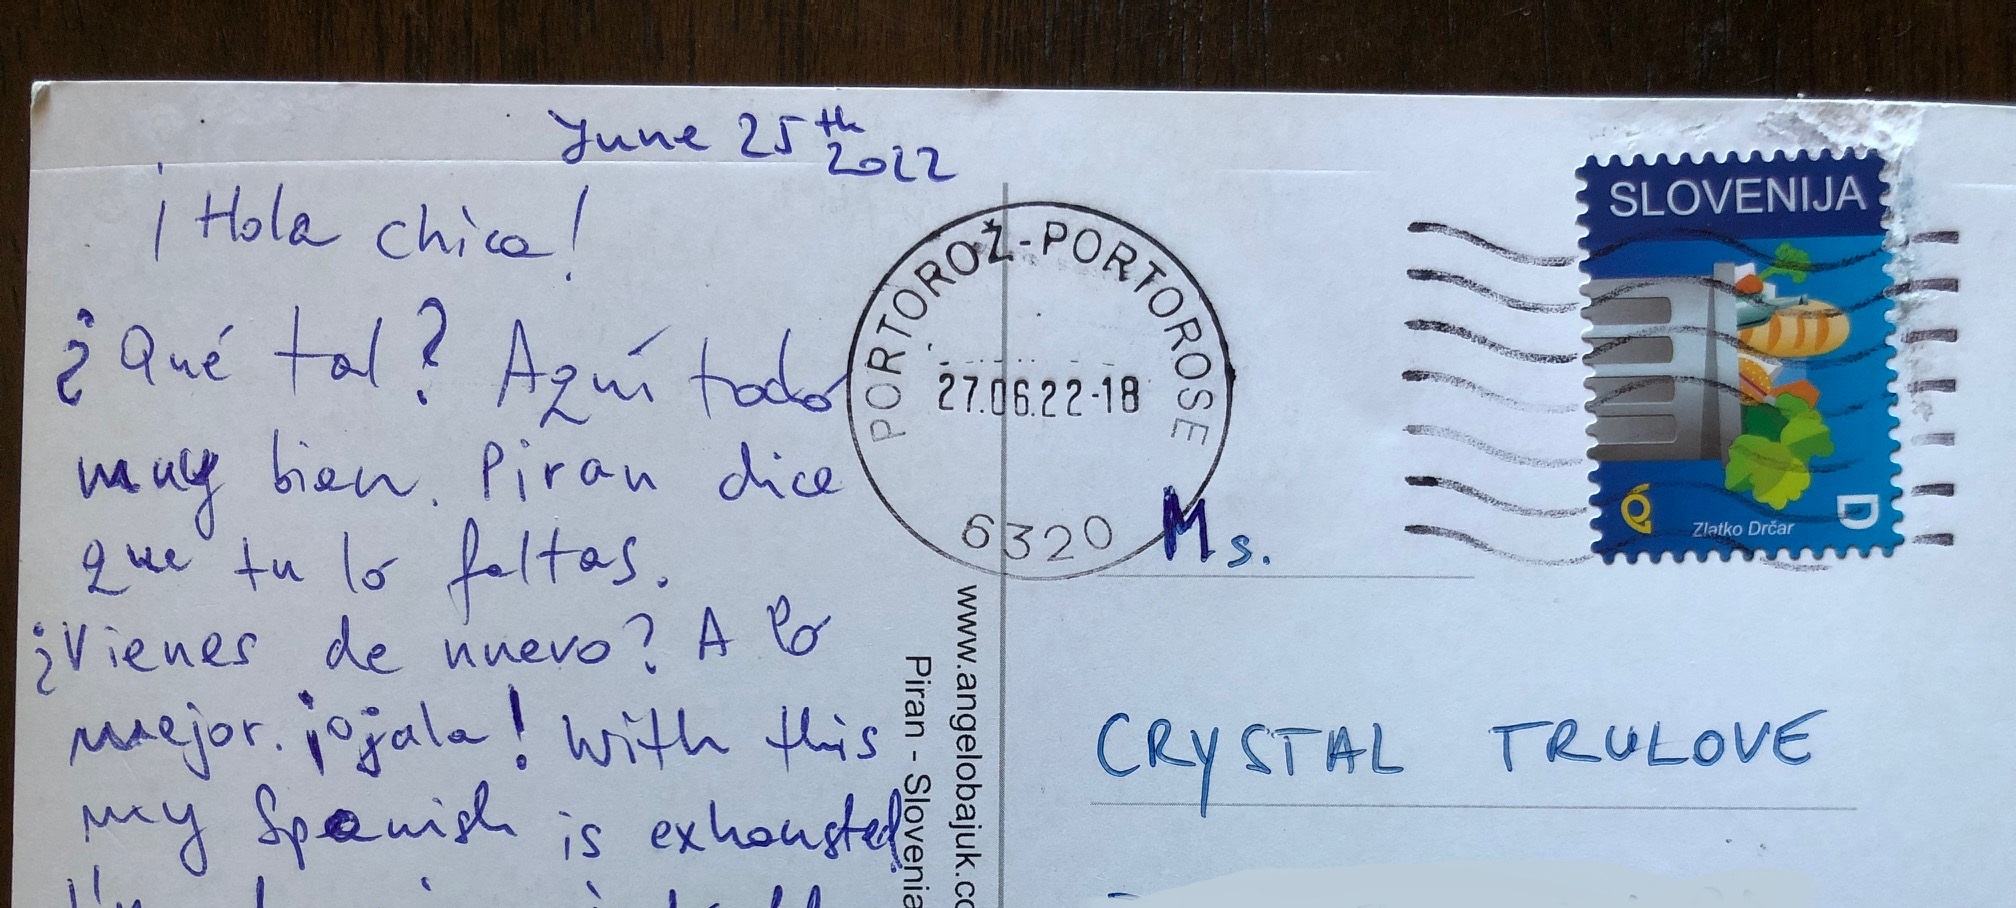 June 25th
2022
¡Hola chica!
¿Qué tal? Aquí todo
muy bien. Piran dice
que tu lo faltas.
¿Vienes de nuevo? A lo
mejor. ¡ojala! With this
my Spanish is exhausted
PORTOROŽ-PORTOROSE
27.06.22-18
6320
www.angelobajuk.co
Piran - Slovenia
SLOVENIJA
Zlatko Drčar
D
Ms.
CRYSTAL TRULOVE